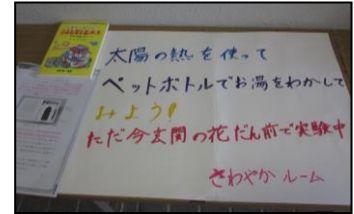 太陽の熱を使って
ペットボトルでお湯をわかして
みよう!
ただ今玄関の花だん前で実験中
さわやかルーム